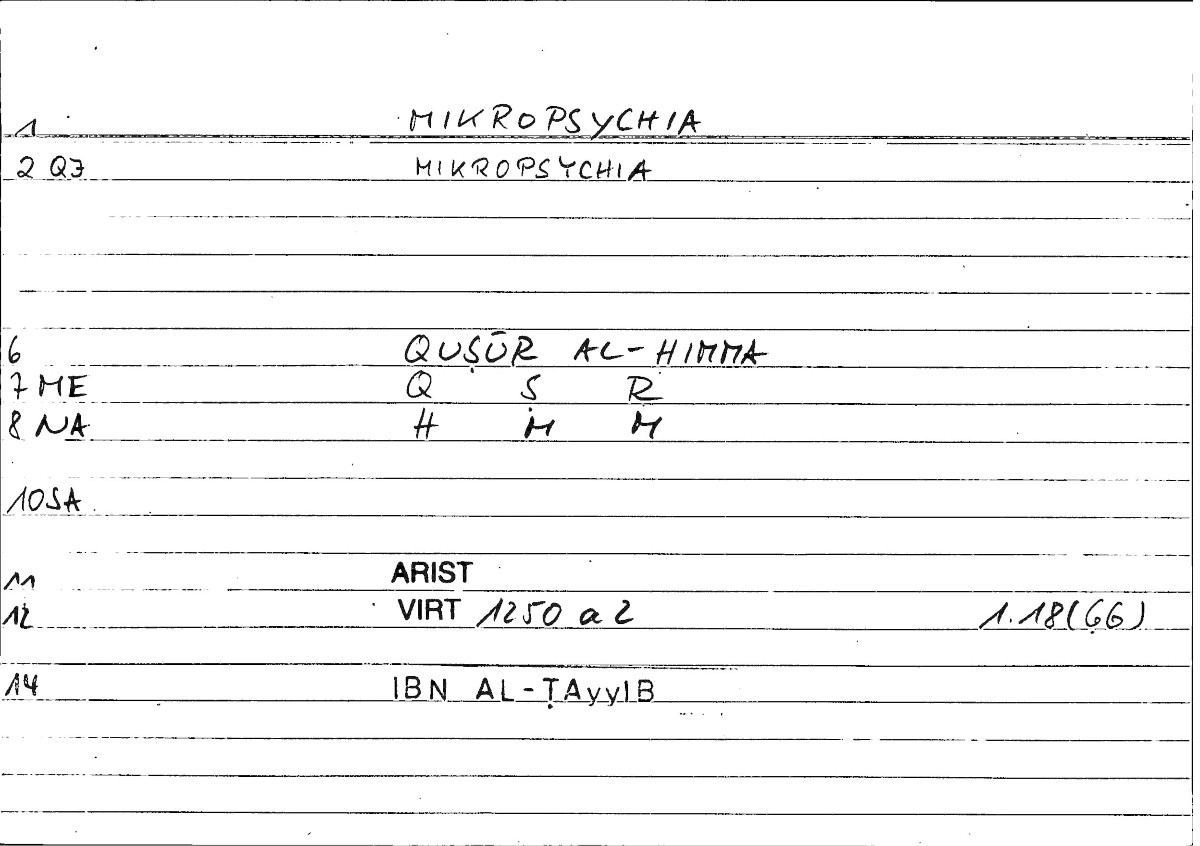 1 MIKROPSYCHIA
2 QJ MIKROPSYCHIA
6 QUṢŪR AL-HIMMA
7 ME Q Ṣ R
8 NA H M M
10 SA
11 ARIST
12 VIRT 1250 a 2 1.18(GG)
14 IBN AL-ṬAyyIB